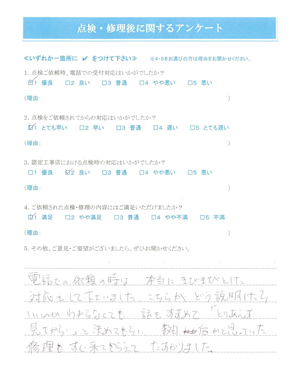 点検・修理後に関するアンケート
≪いずれか一箇所に ✔ をつけて下さい≫ ※4・5をお選びの方は理由をお聞かせください。
1. 点検ご依頼時、電話での受付対応はいかがでしたか？
☑1 優良 □2 良い □3 普通 □4 やや悪い □5 悪い
(理由： )
2. 点検をご依頼されてからの対応はいかがでしたか？
☑1 とても早い □2 早い □3 普通 □4 遅い □5 とても遅い
(理由： )
3. 認定工事店における点検時の対応はいかがでしたか？
□1 優良 ☑2 良い □3 普通 □4 やや悪い □5 悪い
(理由： )
4. ご依頼された点検・修理の内容にはご満足いただけましたか？
☑1 満足 □2 やや満足 □3 普通 □4 やや不満 □5 不満
(理由： )
5. その他、ご意見・ご要望がございましたら、ぜひお聞かせください。
電話での依頼の時は 本当にきびきびとした
対応をして下さいました。こちらが どう説明したら
いいのか わからなくても 話をすすめて 「とりあえず
見てから…」と決めてもらい
修理もすぐ来てもらえて たすかりました。